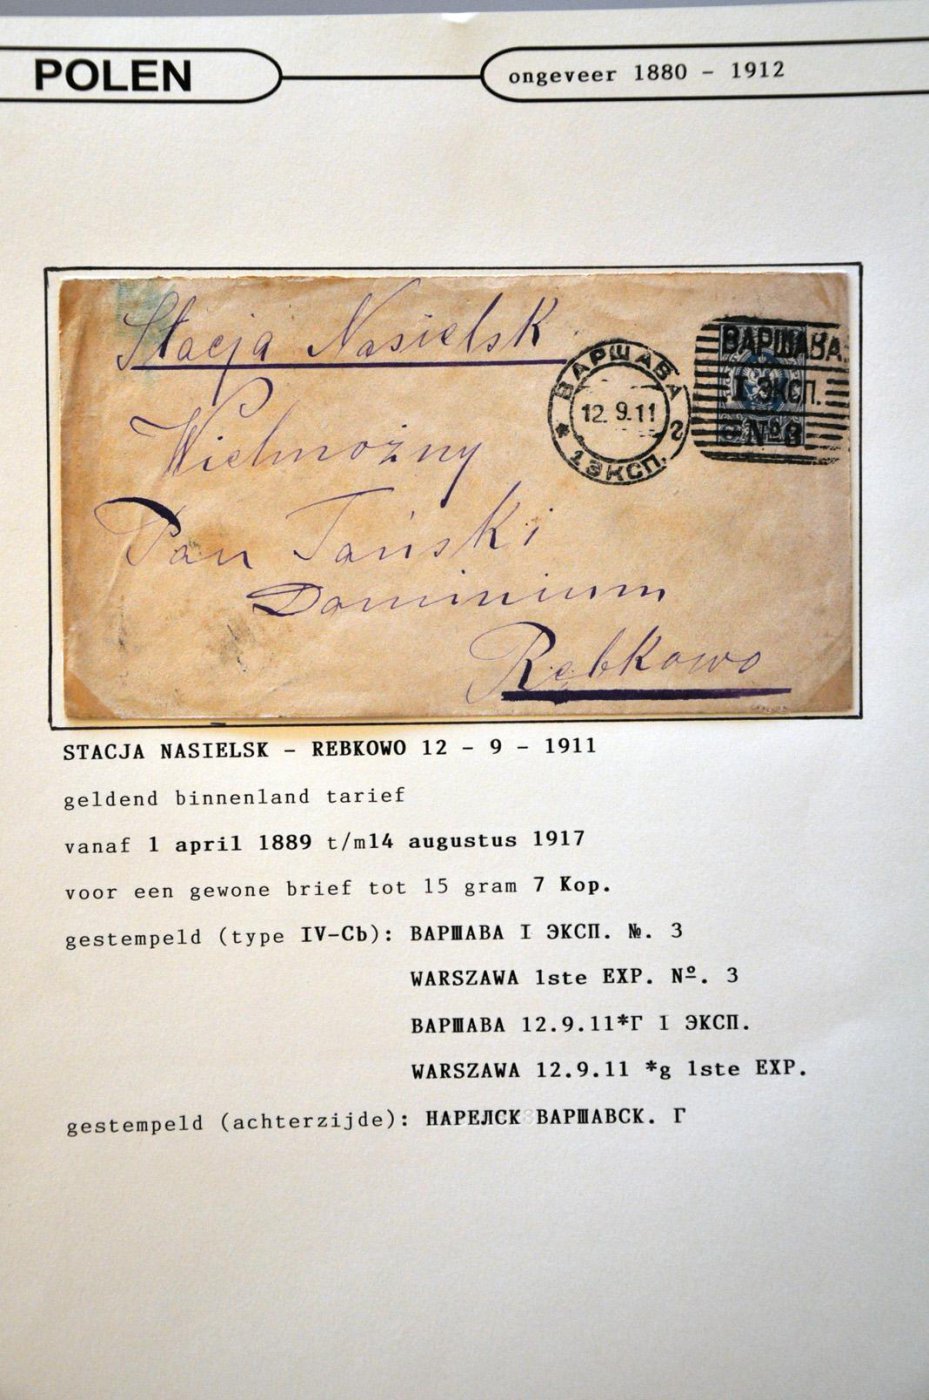 POLEN
ongeveer 1880 - 1912
Stacja Nasielsk
Wielmożny
Pan Tański
Dominium
Rębkowo
ВАРШАВА
12.9.11
* 1 ЭКСП. г
ВАРШАВА.
I ЭКСП.
№ 3
STACJA NASIELSK - REBKOWO 12 - 9 - 1911
geldend binnenland tarief
vanaf 1 april 1889 t/m14 augustus 1917
voor een gewone brief tot 15 gram 7 Kop.
gestempeld (type IV-Cb): ВАРШАВА I ЭКСП. №. 3
WARSZAWA 1ste EXP. Nº. 3
ВАРШАВА 12.9.11*Г I ЭКСП.
WARSZAWA 12.9.11 *g 1ste EXP.
gestempeld (achterzijde): НАРЕЛСК ВАРШАВСК. Г